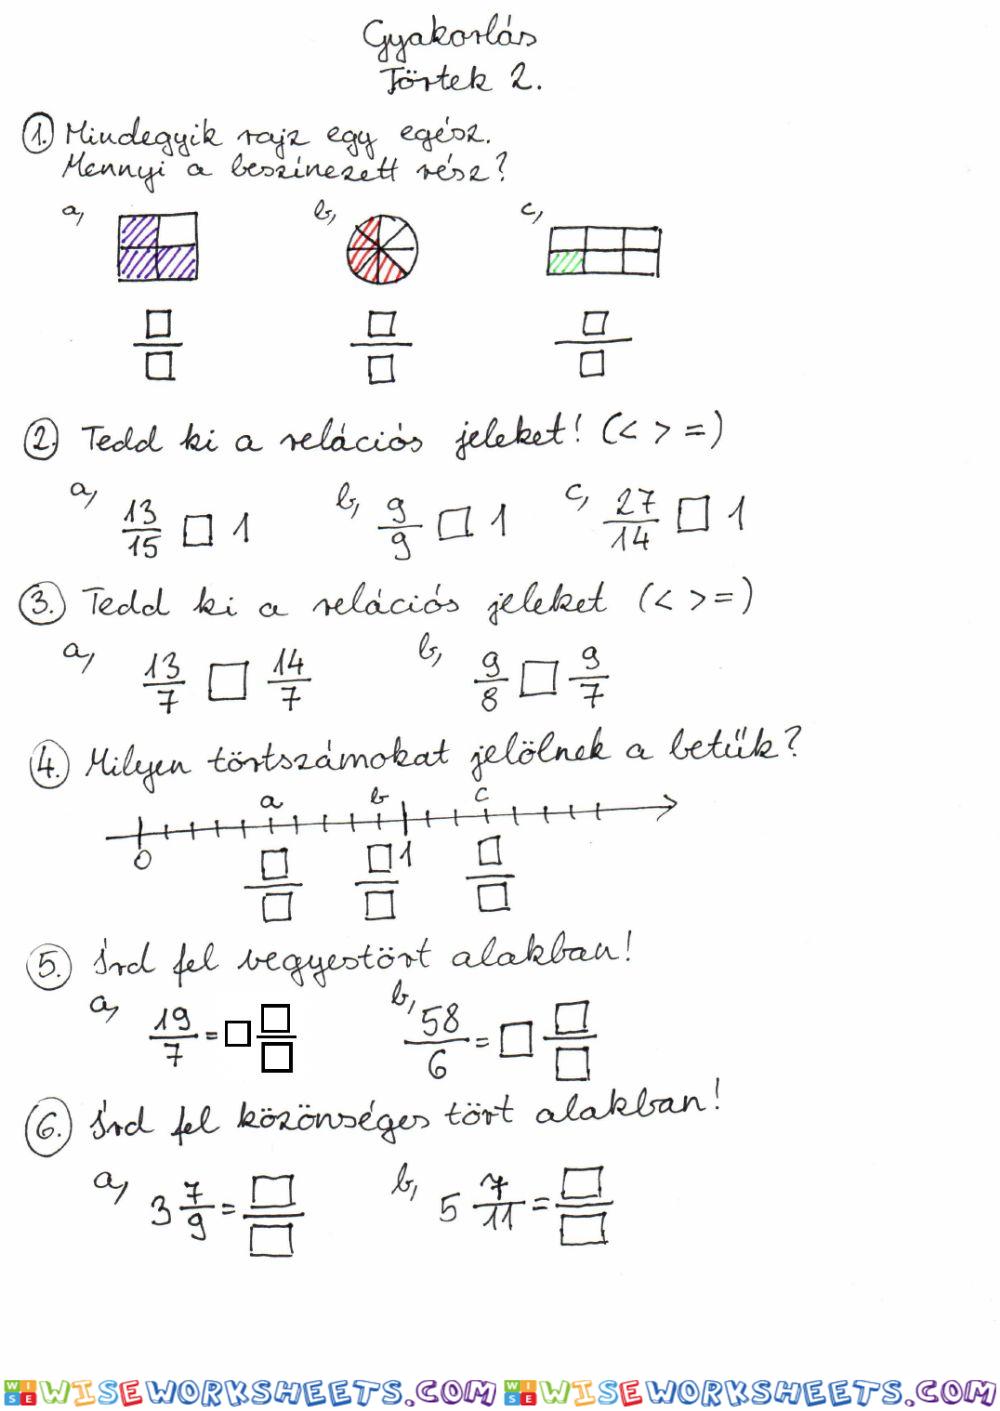 Gyakorlás
Törtek 2.
1. Mindegyik rajz egy egész.
Mennyi a beszínezett rész?
a, b, c,
2. Tedd ki a relációs jeleket! (< > =)
a, 13/15 □ 1 b, 9/9 □ 1 c, 27/14 □ 1
3. Tedd ki a relációs jeleket (< > =)
a, 13/7 □ 14/7 b, 9/8 □ 9/7
4. Milyen törtszámokat jelölnek a betűk?
a b c
0 1
5. Írd fel vegyestört alakban!
a, 19/7 = □ □/□ b, 58/6 = □ □/□
6. Írd fel közönséges tört alakban!
a, 3 7/9 = □/□ b, 5 7/11 = □/□
WISE WISEWORKSHEETS.COM WISE WISEWORKSHEETS.COM